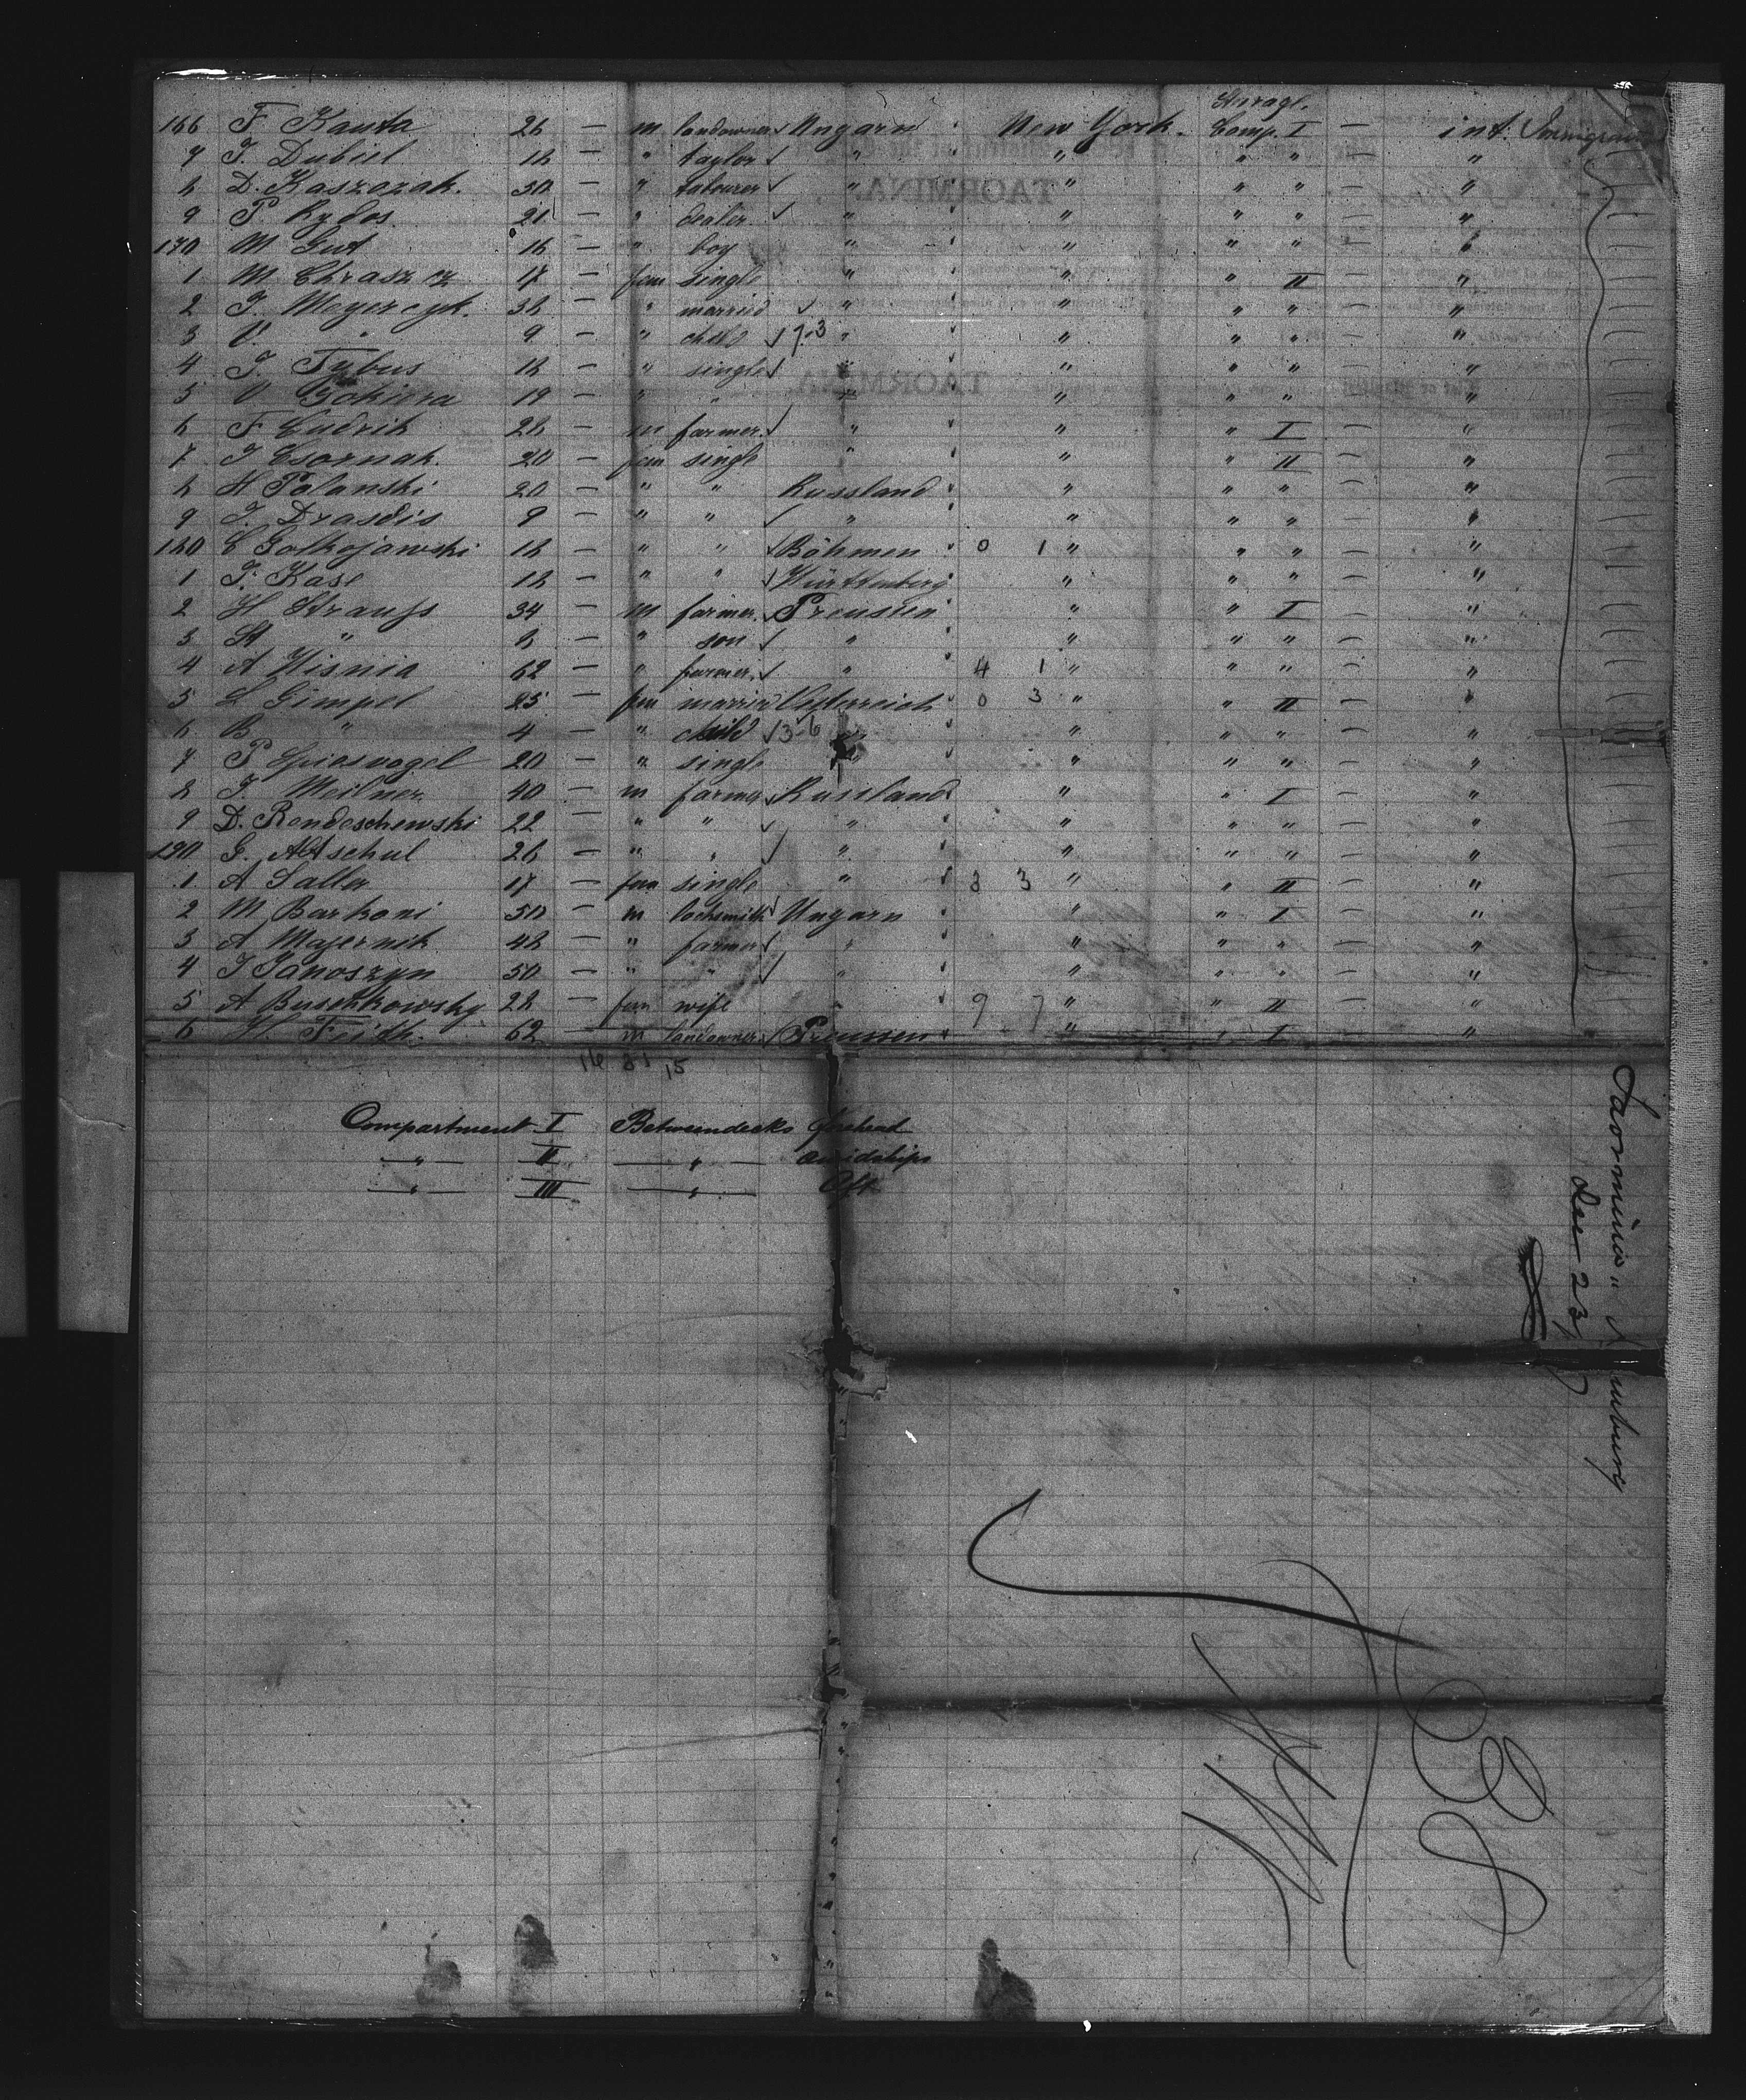 Steerage.
166 F Kauta 26 — m landowner Ungarn New York. Comp. I — int. Immigrant
7 J. Dubiel 18 — " taylor " " " " — "
8 D. Kaszczak. 30 — " labourer " " " " — "
9 P Rydos. 21 — " dealer " " " " — "
170 M Gut 16 — " boy " " " " — "
1 M. Chraszcz 17 — fem single " " " II — "
2 J. Meyerczyk. 38 — " married " " " " — "
3 V. " 9 — " child 7-3 " " " " — "
4 J. Tybus 18 — " single " " " " — "
5 V Gokiera 19 — " " " " " " — "
6 F Cudrik 28 — m farmer. " " " I — "
7 J Csornak. 20 — fem single " " " II — "
8 H Polanski 20 — " " Russland " " " — "
9 J. Drasdis 9 — " " " " " " — "
180 C Golkojowski 18 — " " Böhmen 0 1 " " " — "
1 J. Kase 18 — " " Württemberg " " " — "
2 H Strauss 34 — m farmer. Preussen " " I — "
3 St " 8 — " son " " " " — "
4 A Wisnia 62 — " farmer. " 4 1 " " " — "
5 L Gimpel 25 — fem married Oesterreich 0 3 " " II — "
6 B " 4 — " child 3-6 " " " " — "
7 P Spiesvogel 20 — " single " " " " — "
8 J. Meilner. 40 — m farmer Russland " " I — "
9 D. Rendeschewski 22 — " " " " " " — "
190 G. Altschul 26 — " " " " " " — "
1 A Saller 17 — fem single " 3 3 " " II — "
2 M Barkoni 50 — m locksmith Ungarn " " I — "
3 A Majernik 48 — " farmer " " " " — "
4 J Janoszyn 50 — " " " " " " — "
5 A Buschkowsky 28 — fem wife " 9 7 " " II — "
6 H. Feith. 62 — m landowner Preussen " " I — "
16 31 15
Compartment I Betweendecks forehead
" II " amidships
" III " Aft
Taormina " Hamburg
Dec 23
TAORMINA.
TAORMINA.